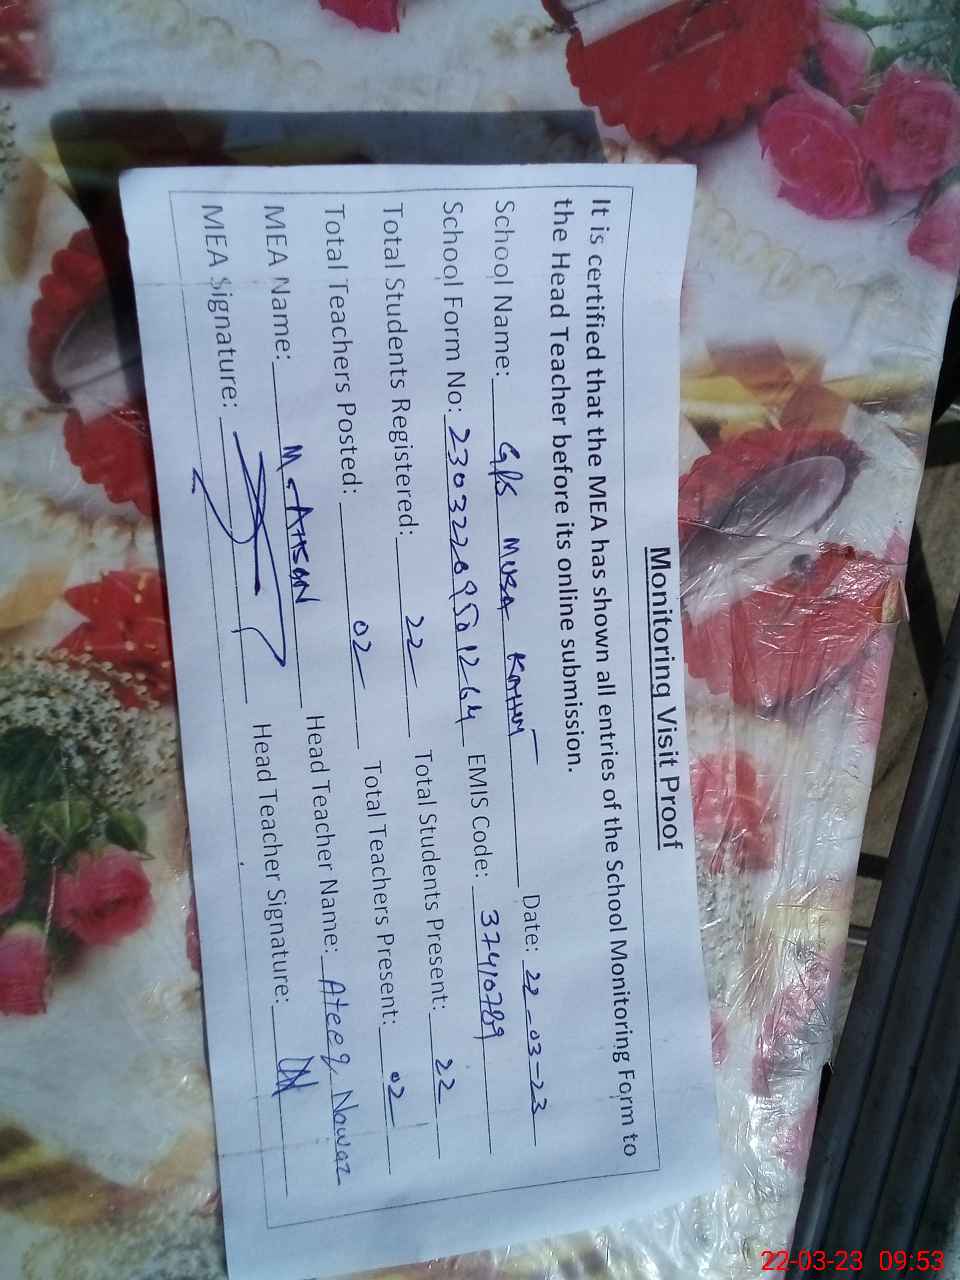 Monitoring Visit Proof
It is certified that the MEA has shown all entries of the School Monitoring Form to
the Head Teacher before its online submission.
School Name: GPS MUSA Date: 22-03-23
School Form No: 23032209501264 EMIS Code: 37410789
Total Students Registered: 22 Total Students Present: 22
Total Teachers Posted: 02 Total Teachers Present: 02
MEA Name: M. AHSAN Head Teacher Name: Ateeq Nawaz
MEA Signature: Head Teacher Signature:
22-03-23 09:53